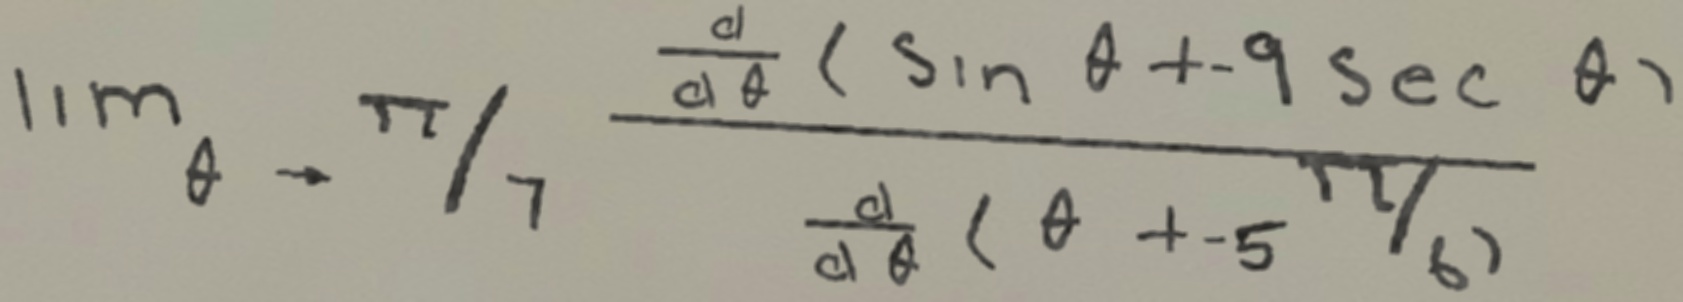 \lim_{\theta \to \pi/7} \frac{\frac{d}{d\theta}(\sin\theta + -9\sec\theta)}{\frac{d}{d\theta}(\theta + -5\pi/6)}